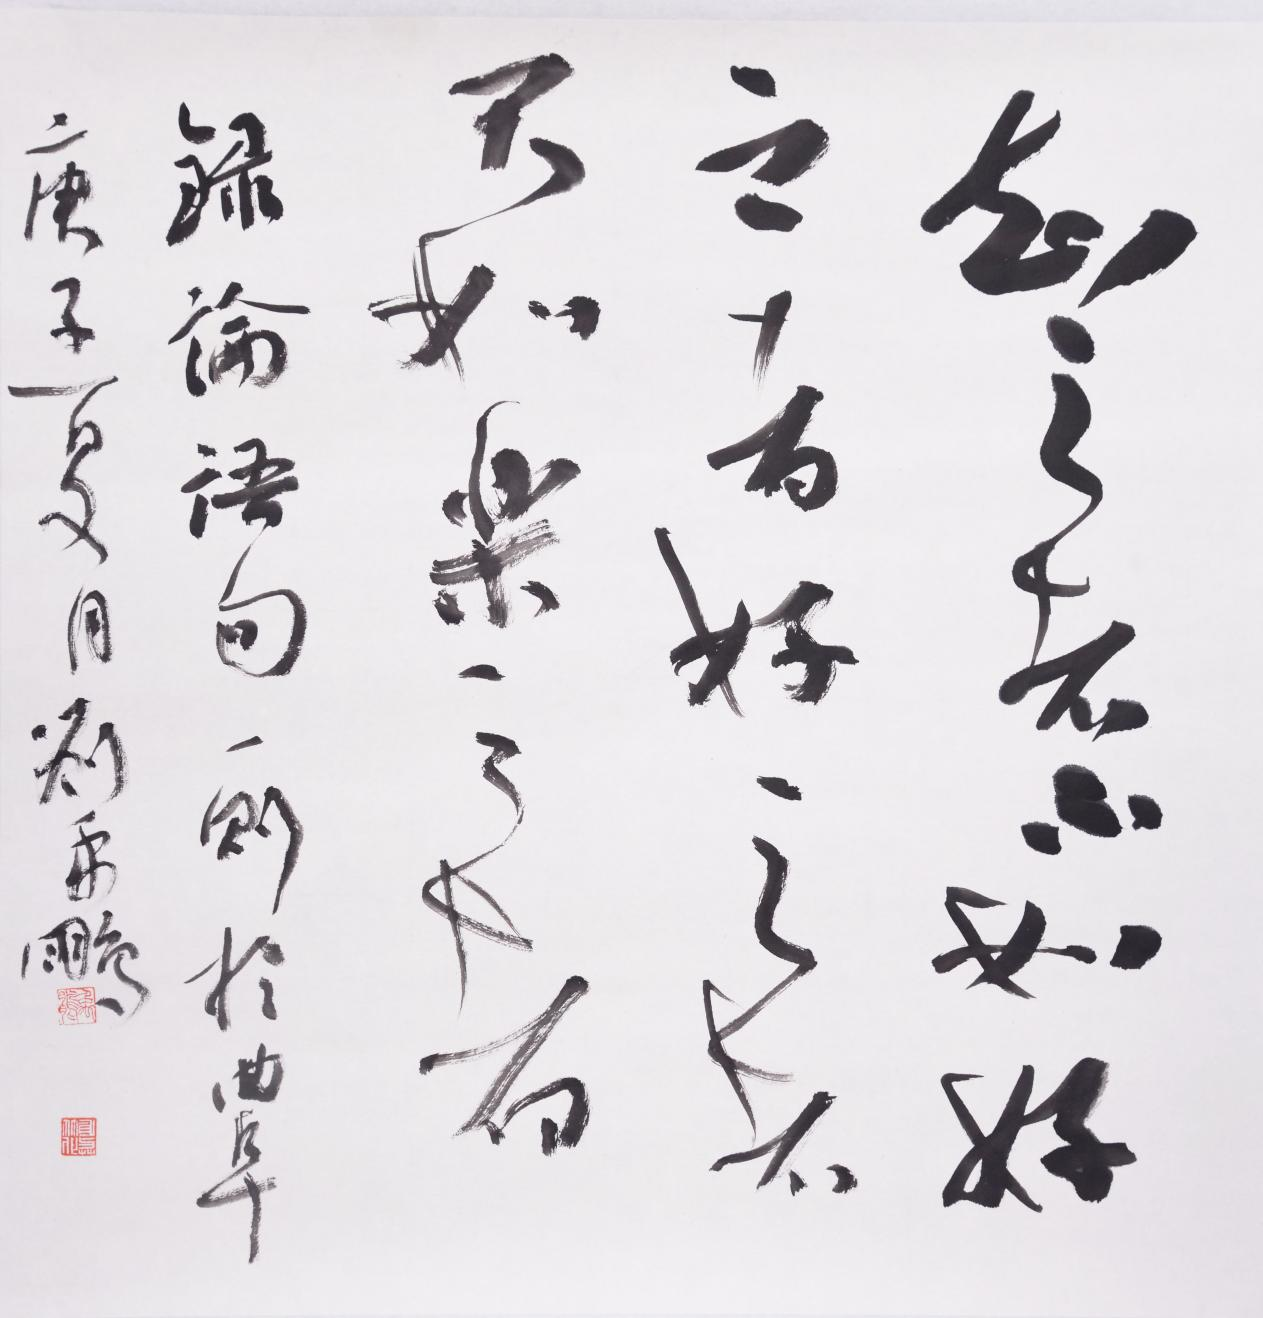 知之者不如好
之者好之者
不如樂之者
録論語句一則於曲阜
庚子夏月劉秉鵬